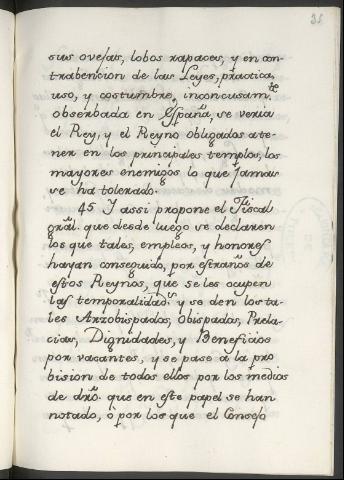 35
sus ovejas, lobos rapaces, y en con-
trabencion de las Leyes, practica,
uso, y costumbre, inconcusam.te
obserbada en España, se veria
el Rey, y el Reyno obligados ate-
ner en los principales templos, los
mayores enemigos lo que jamas
se ha tolerado.
45 I assi propone el Fiscal
gral. que desde luego se declaren
los que tales, empleos, y honores
hayan conseguido, por estraños de
estos Reynos, que se les ocupen
las temporalidad.s y se den los ta-
les Arzobispados, Obispados, Prela-
cias, Dignidades, y Beneficios
por vacantes, y se pase á la pro
bision de todos ellos por los medios
de dro. que en este papel se han
notado, ò por los que el Consejo